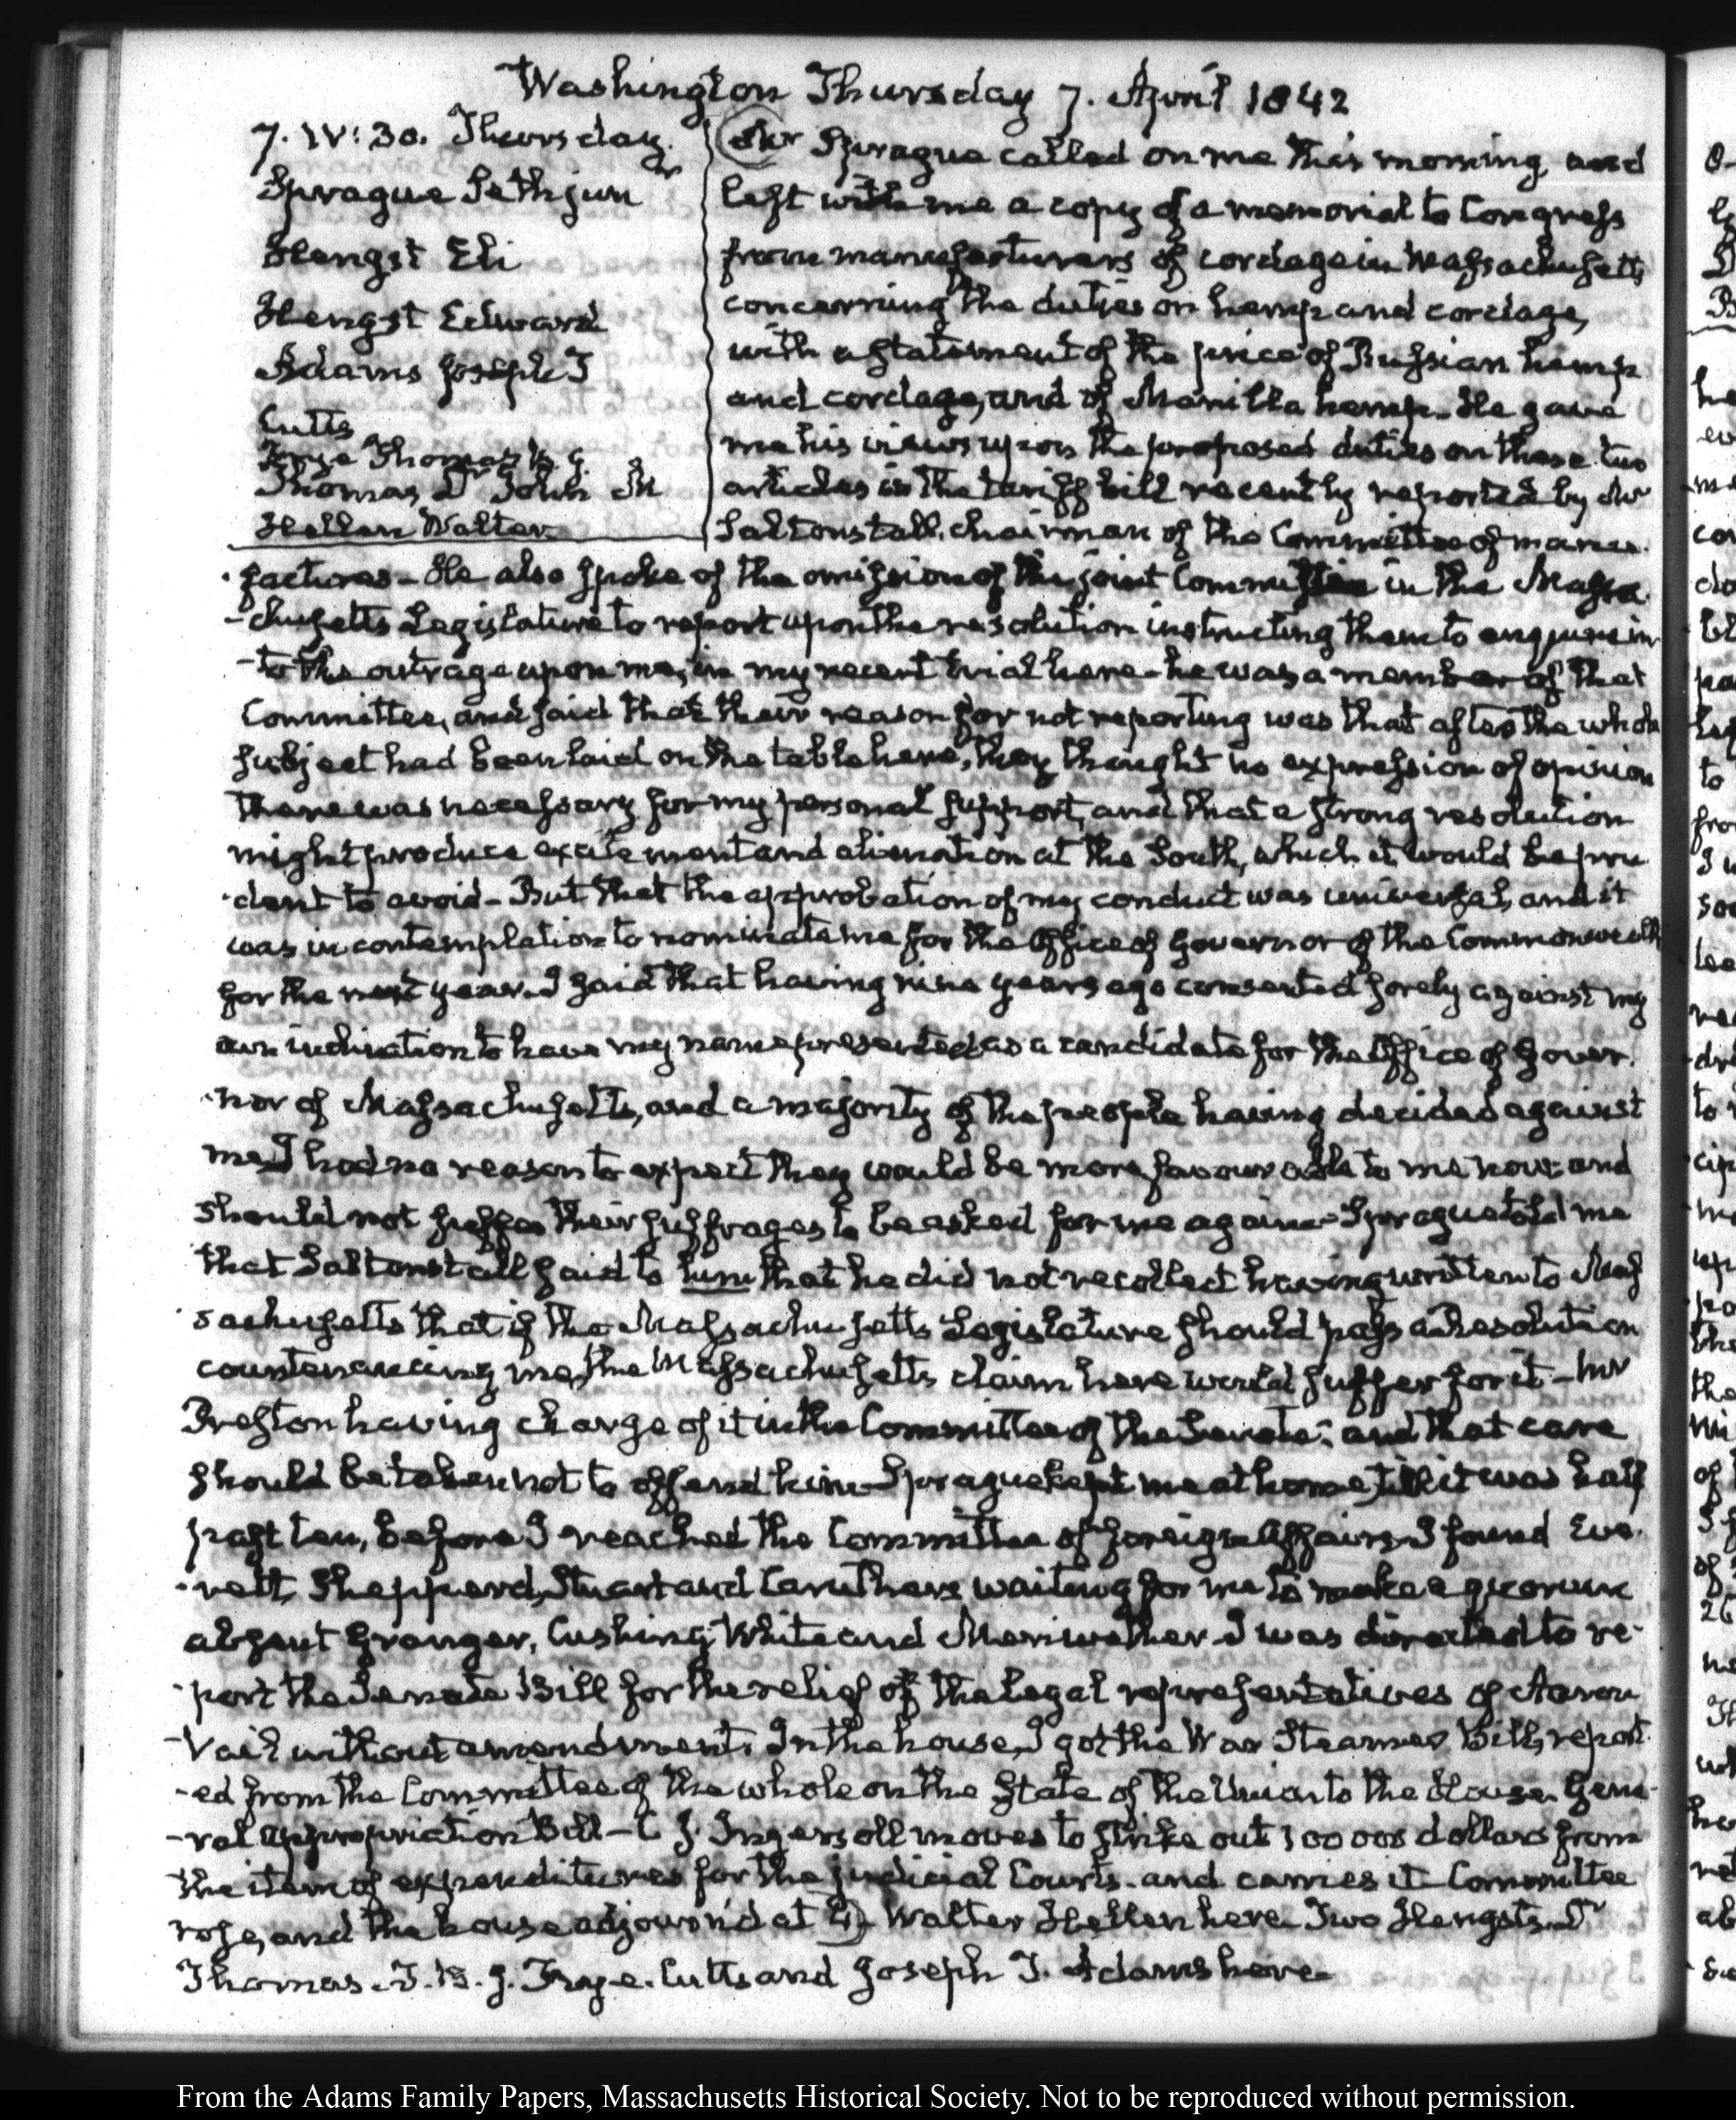 Washington Thursday 7. April 1842
7. IV: 30. Thursday.
Sprague Seth junr
Hengst Eli
Hengst Edward
Adams Joseph T
Cutts
Frye Thomas B. J.
Thomas Dr John M
Hellen Walter
Mr Sprague called on me this morning and
left with me a copy of a memorial to Congress
from manufacturers of cordage in Massachusetts
concerning the duties on hemp and cordage,
with a statement of the price of Russian hemp
and cordage, and of Manilla hemp. He gave
me his views upon the proposed duties on these two
articles in the tariff bill recently reported by Mr
Saltonstall, chairman of the Committee of manu-
-factures- He also spoke of the omission of the joint Committee in the Massa
-chusetts Legislature to report upon the resolution instructing them to enquire in
-to the outrage upon me, in my recent trial here- he was a member of that
Committee, and said that their reason for not reporting was that after the whole
subject had been laid on the table here, they thought no expression of opinion
there was necessary for my personal support, and that a strong resolution
might produce excitement and alienation at the South, which it would be pru
-dent to avoid- But that the approbation of my conduct was universal, and it
was in contemplation to nominate me for the Office of Governor of the Commonwealth
for the next year. I said that having nine years ago consented sorely against my
own inclination to have my name presented as a candidate for the Office of Gover-
-nor of Massachusetts, and a majority of the people having decided against
me I had no reason to expect they would be more favourable to me now: and
should not suffer their suffrages to be asked for me again- Sprague told me
that Saltonstall said to him that he did not recollect having written to Mas
-sachusetts that if the Massachusetts Legislature should pass a Resolution
countenancing me, the Massachusetts claim here would suffer for it- Mr
Preston having charge of it in the Committee of the Senate; and that care
should be taken not to offend him- Sprague kept me at home, till it was half
past ten, before I reached the Committee of foreign Affairs- I found Eve-
-rett, Shepperd, Stuart and Caruthers waiting for me to make a quorum
absent Granger, Cushing, White and Meriwether- I was directed to re-
-port the Senate Bill for the relief of the legal representatives of Aaron
-Vail without amendment. In the house, I got the War Steamer Bill, report
-ed from the Committee of the whole on the State of the Union to the House. Gene-
-ral appropriation Bill- C. J. Ingersoll moves to strike out 100 000 dollars from
the item of expenditures for the judicial Courts. and carries it- Committee
rose, and the house adjourn'd at 4)- Walter Hellen here. Two Hengsts. Dr
Thomas. T. B. J. Frye. Cutts and Joseph T. Adams here-
From the Adams Family Papers, Massachusetts Historical Society. Not to be reproduced without permission.